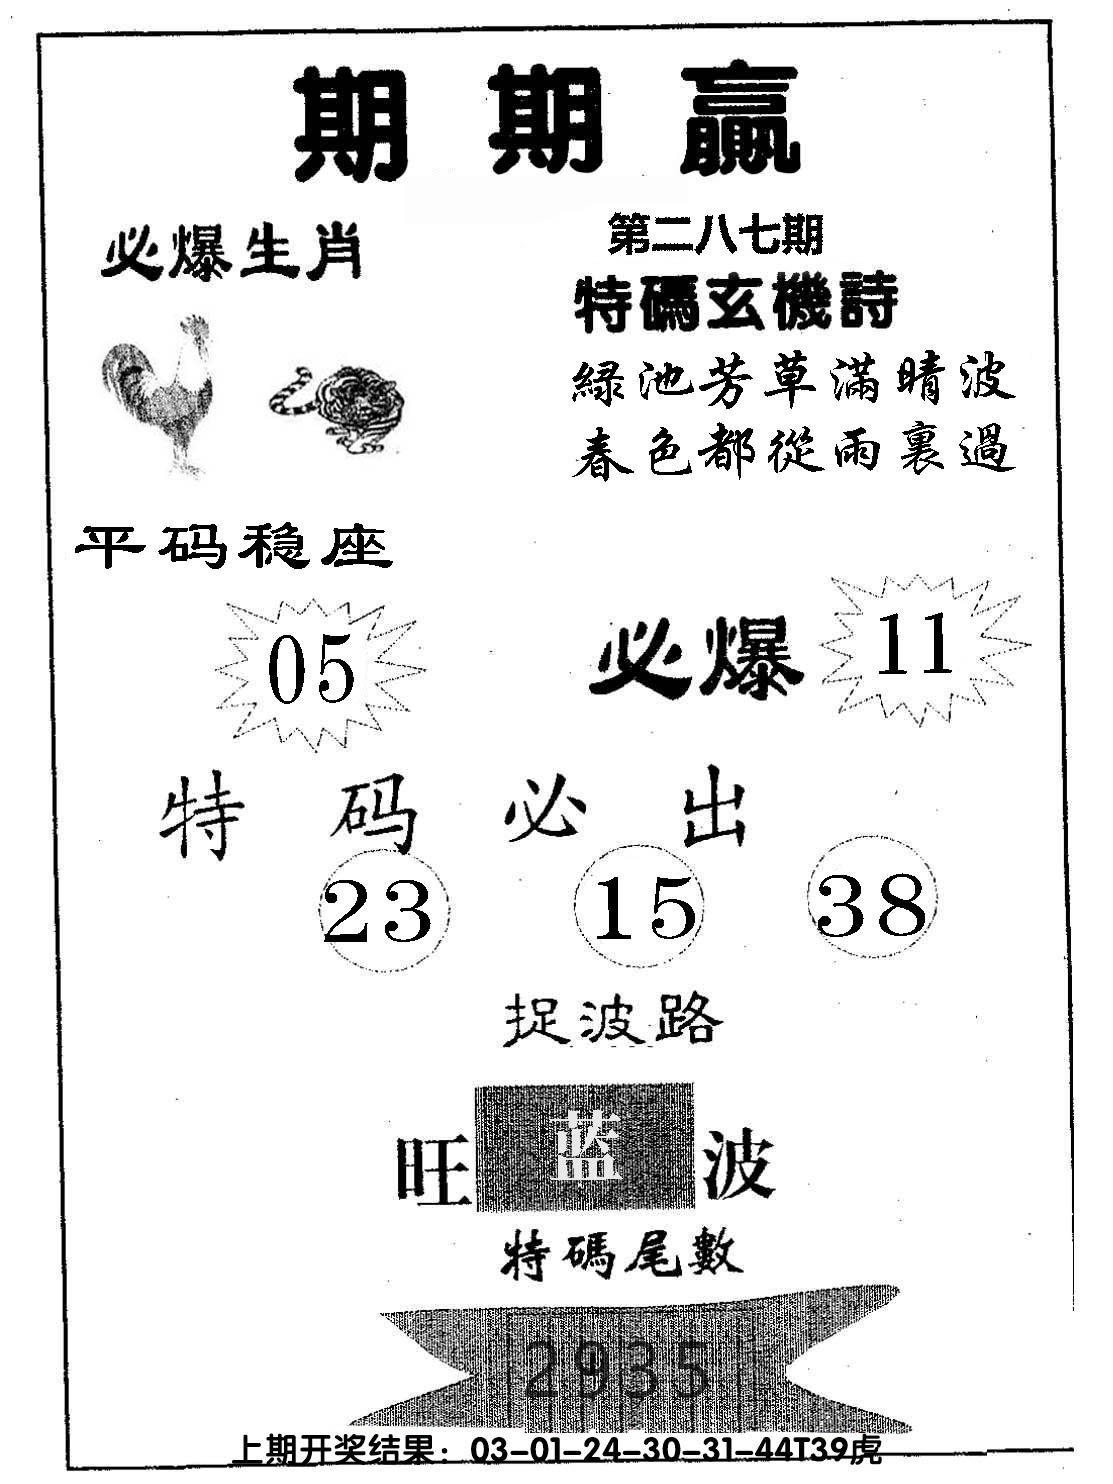 期期贏
必爆生肖
第二八七期
特碼玄機詩
緑池芳草滿晴波
春色都從雨裏過
平码稳座
05
必爆 11
特码必出
23 15 38
捉波路
旺蓝波
特碼尾數
2935
上期开奖结果：03-01-24-30-31-44T39虎